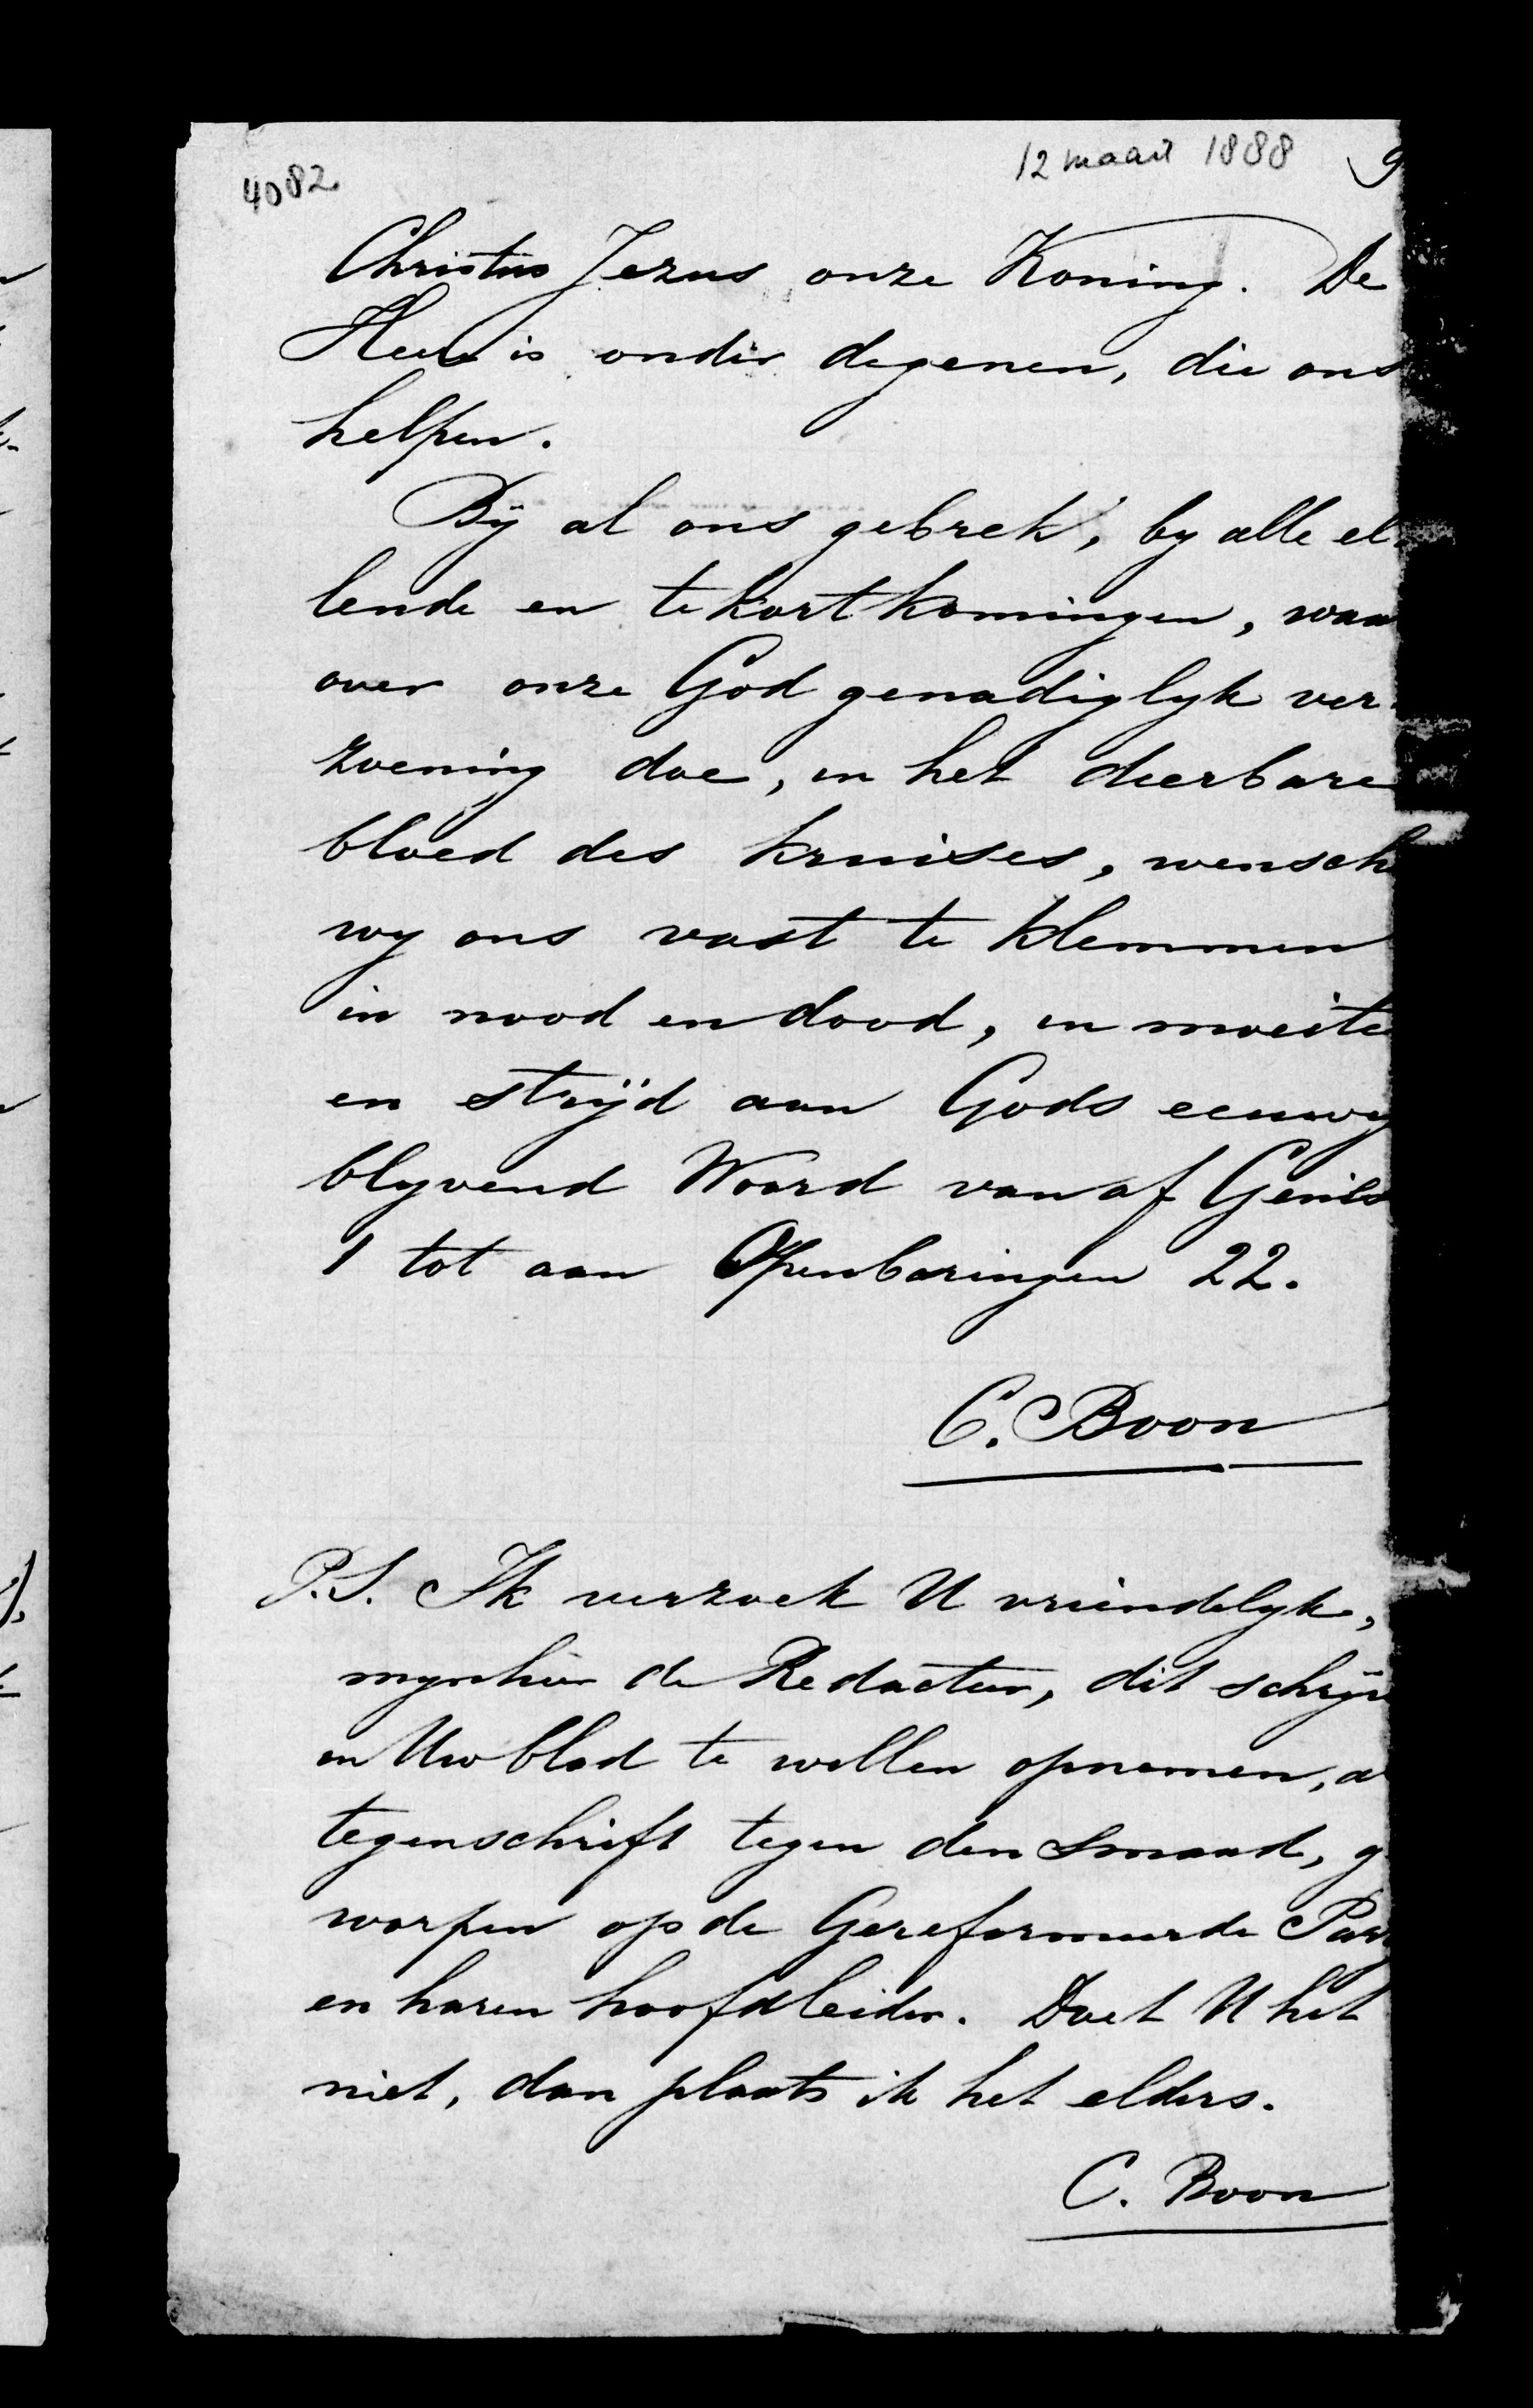 4082
12 maart 1888 9
Christus Jezus onze Koning. De
Heere is onder degenen, die ons
helpen.
Bij al ons gebrek, by alle el-
lende en tekortkomingen, waar
over onze God genadiglyk ver-
zoening doe, in het dierbare
bloed des kruises, wensch
wy ons vast te klemmen
in nood en dood, in moeite
en strijd aan Gods eeuwig
blyvend Woord van af Genes
1 tot aan Openbaringen 22.
C. Boon
P.S. Ik verzoek U vriendelyk,
mynheer de Redacteur, dit schrijv
in Uw blad te willen opnemen, a
tegenschrift tegen den smaad, g
worpen op de Gereformeerde Par
en haren hoofdleider. Doet U het
niet, dan plaats ik het elders.
C. Boon